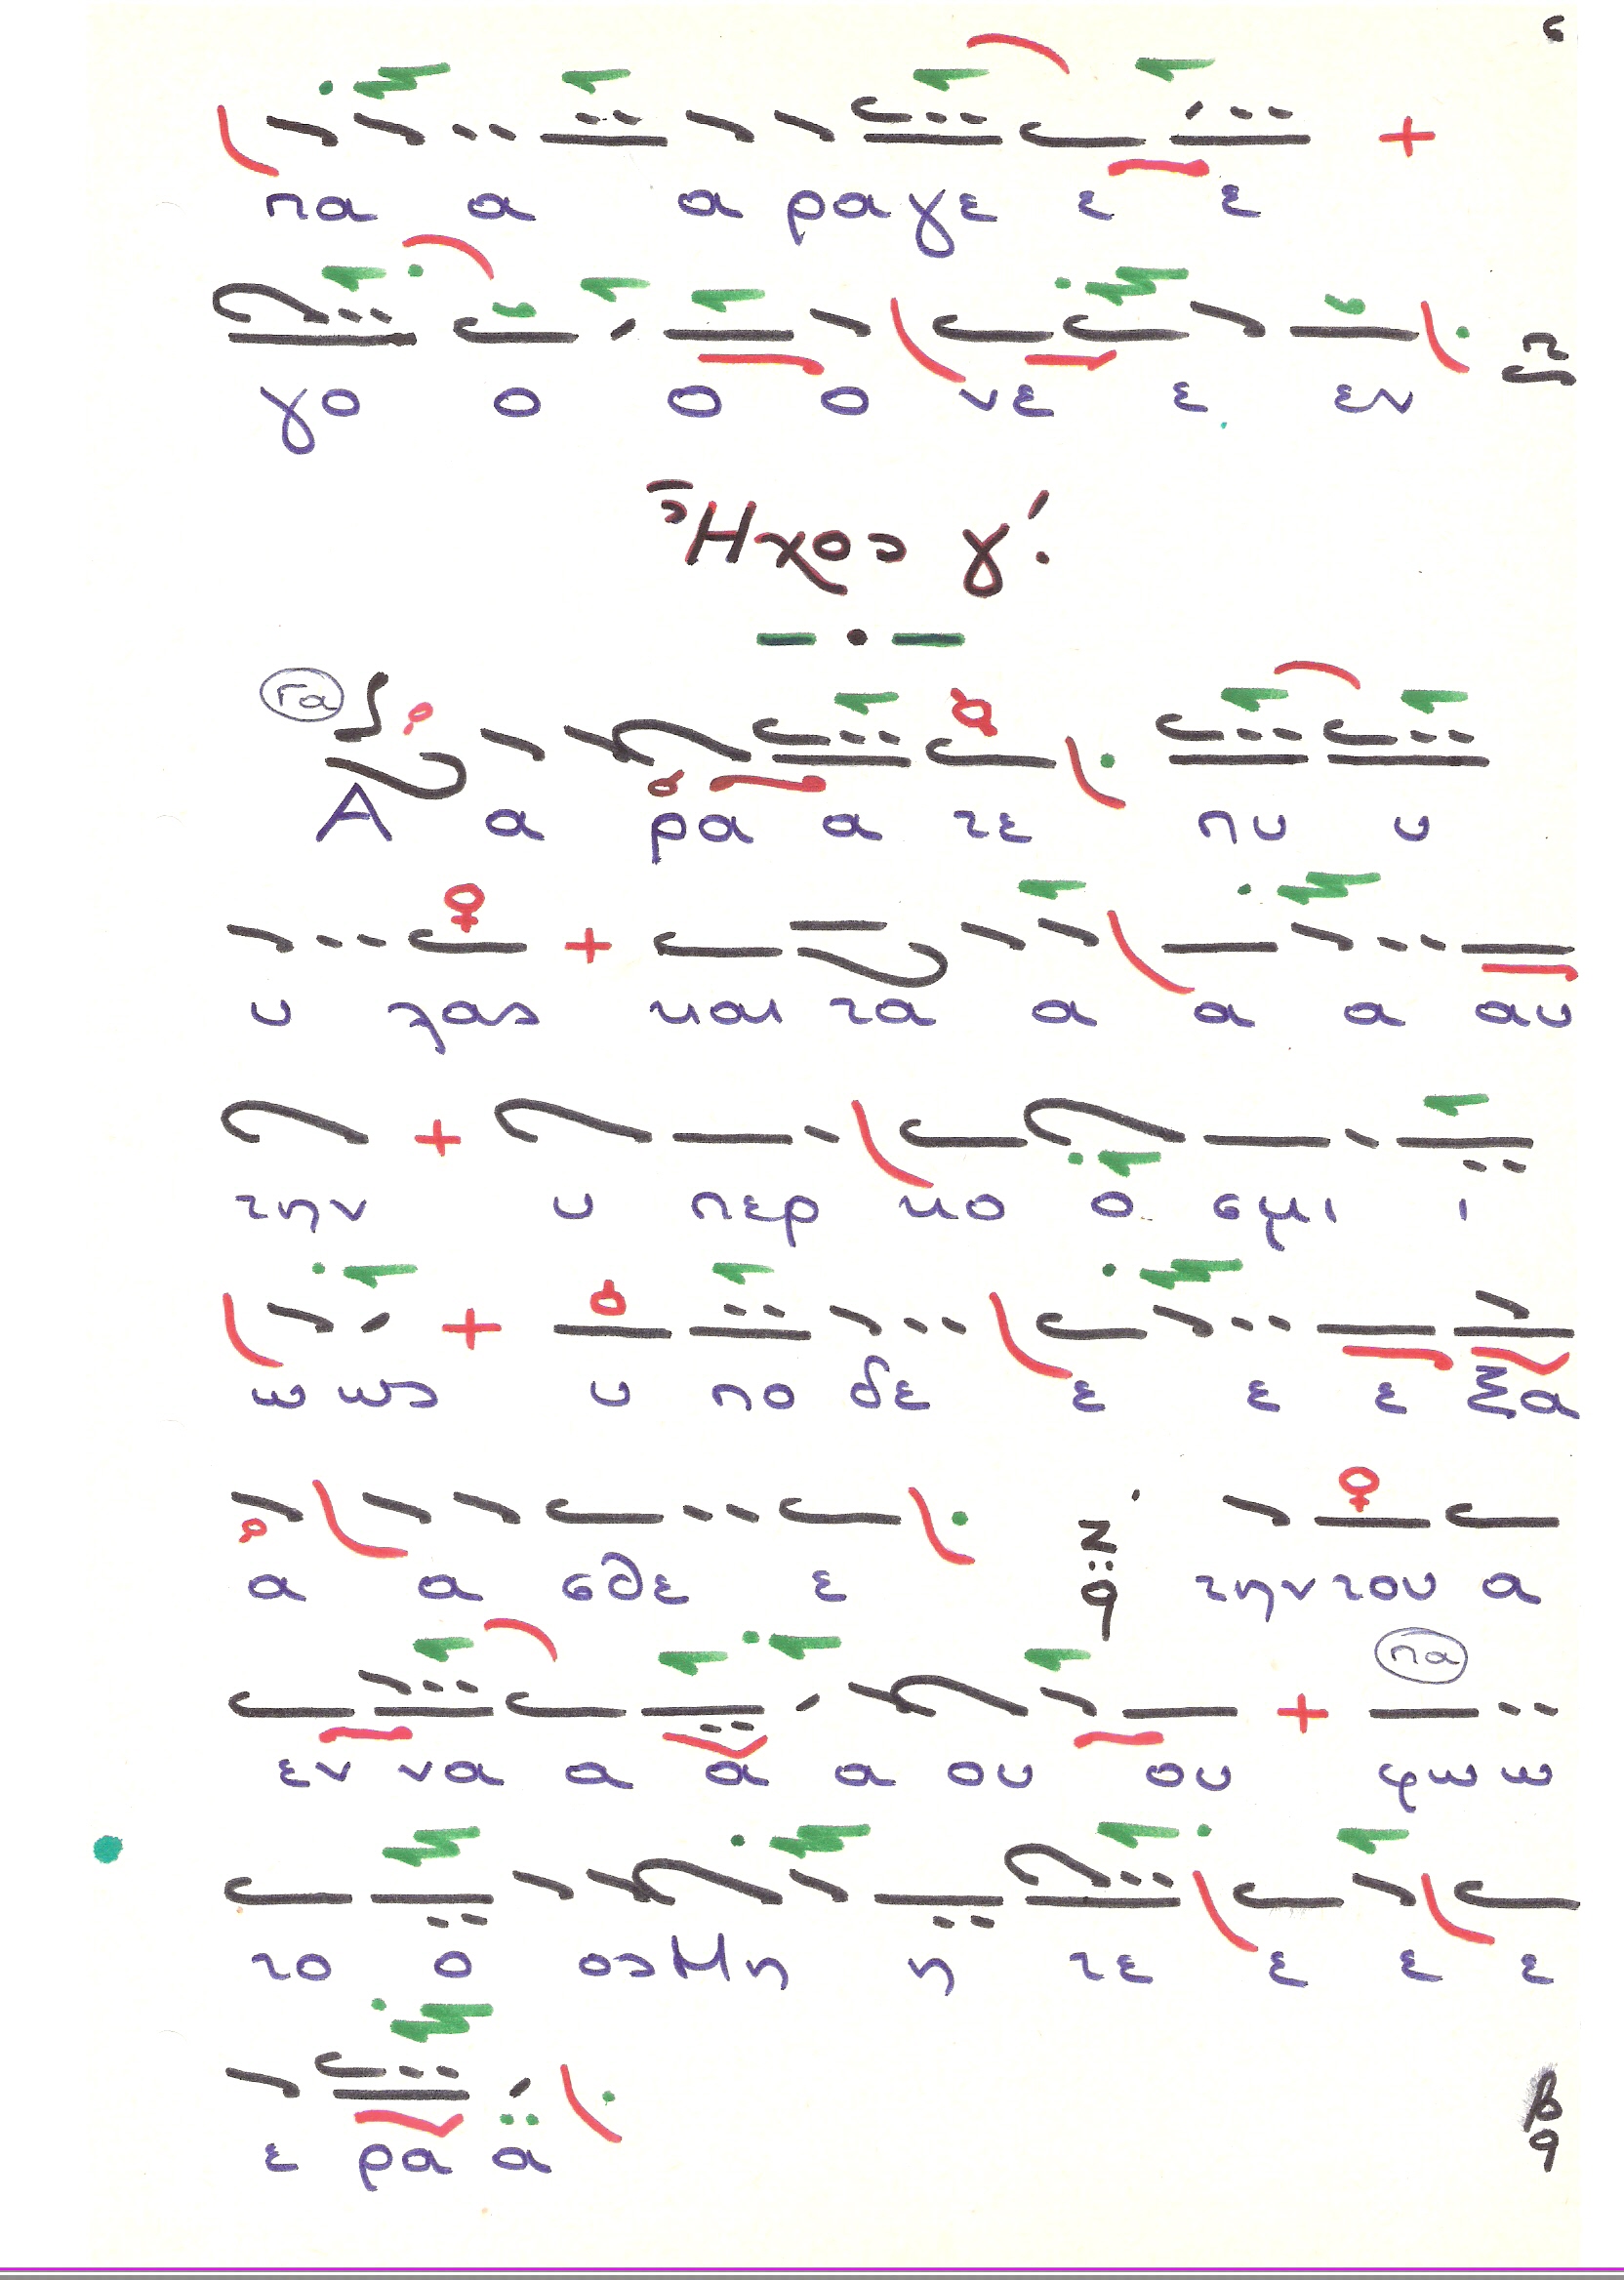 ς
πα α α ρα γε ε ε
γο ο ο ο νε ε εν
π
Ἦχος γ΄.
Γα
Α α ρα α τε πυ υ
υ λας και τα α α α αυ
την υ περ κο ο σμι ι
ω ως υ πο δε ε ε ε ξα
α α σθε ε την του α
Ν
q
εν να α α α ου ου φω ω
πα
το ο ος Μη η τε ε ε ε
ε ρα α
β
q